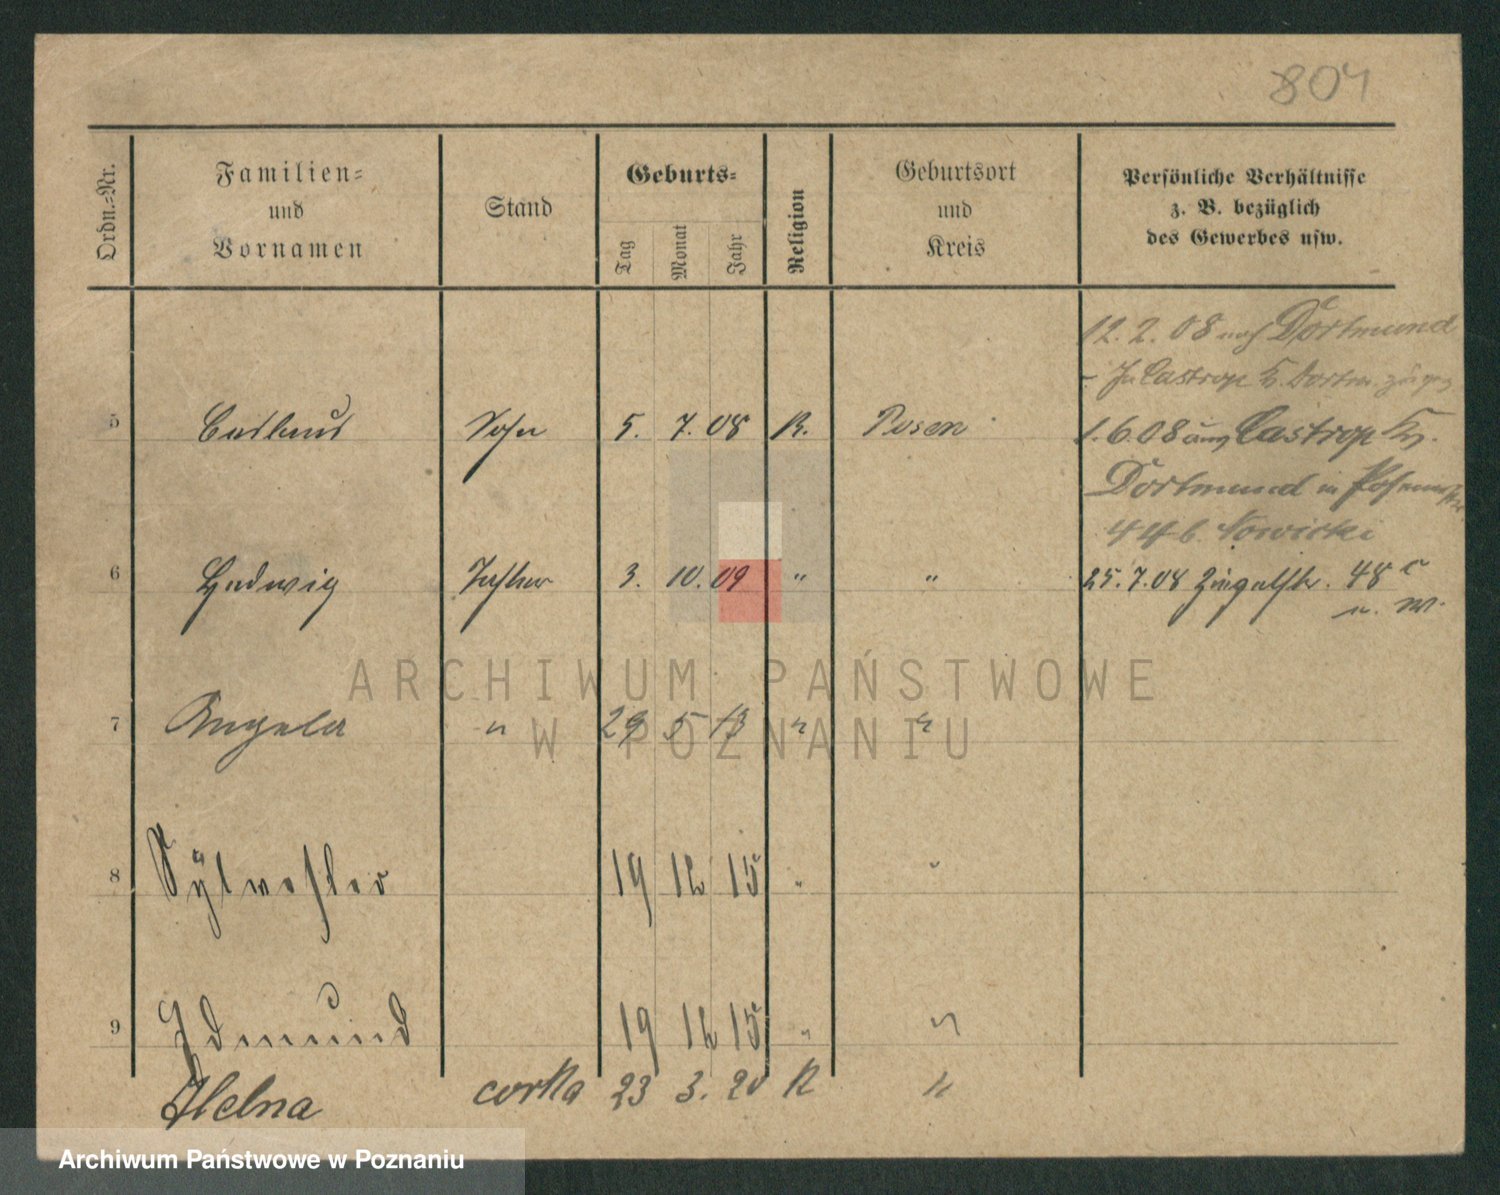 804
Ordn.-Nr.
Familien-
und
Vornamen
Stand
Geburts-
Tag
Monat
Jahr
Religion
Geburtsort
und
Kreis
Persönliche Verhältnisse
z. B. bezüglich
des Gewerbes usw.
12. 2. 08 nach Dortmund
In Castrop K. Dortm.
5 Sohn 5. 7. 08 R. Posen 1. 6. 08 aus Castrop Kr.
Dortmund in
44 b. Nowicki
6 Hedwig Tochter 3. 10. 09 " " 25. 7. 08 Ziegelstr. 48
7 Angela " 29 5 13 " "
8 Sylwester 19 12 15 " "
9 Edmund 19 12 15 " "
Helena corka 23 3. 20 R "
ARCHIWUM PAŃSTWOWE
W POZNANIU
Archiwum Państwowe w Poznaniu